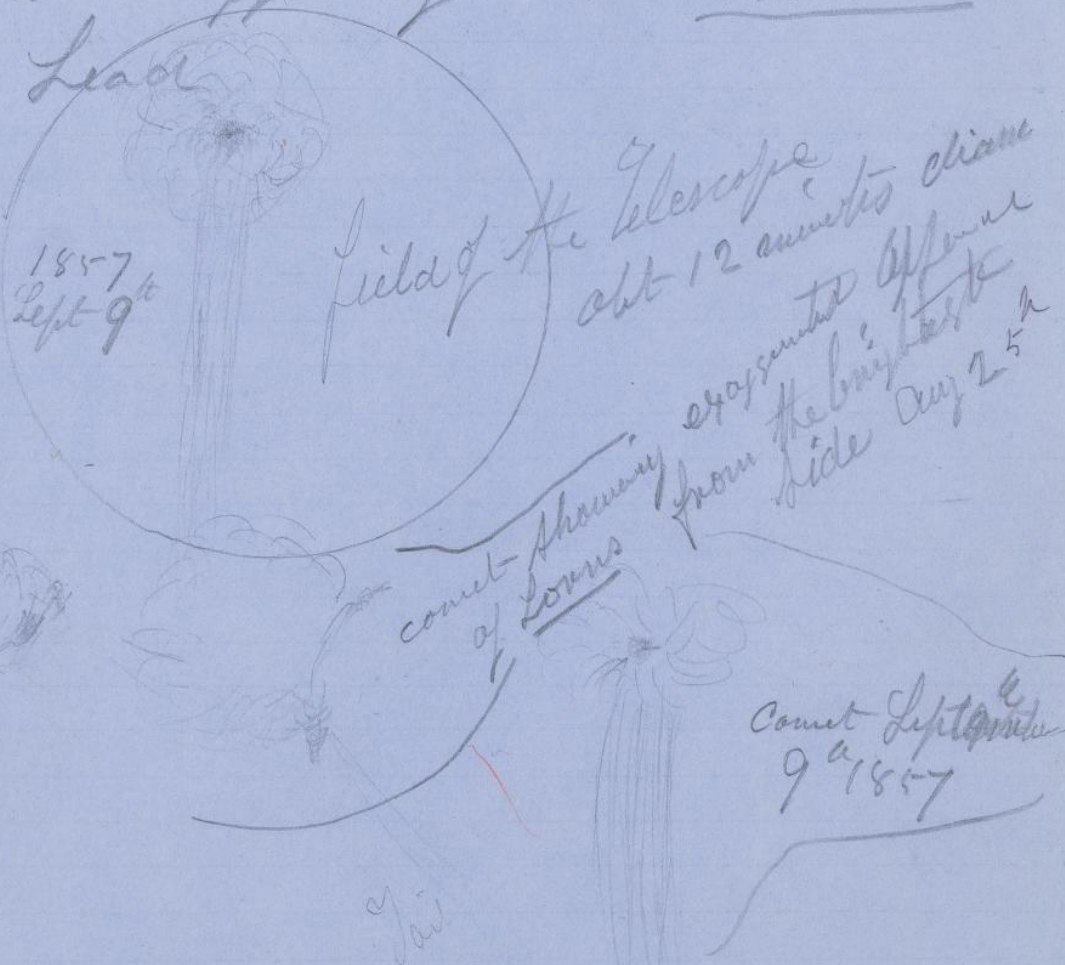 Lead
1857
Sept 9th
field of the Telescope
abt 12 minutes diam
comet showing exaggerated appearance
of Lorus from the brightest
side Aug 25th
Comet Sept
9th 1857
Tail